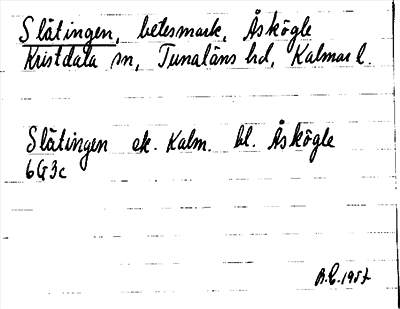 Slätingen, betesmark, Åskögle
Kristdala sn, Tunaläns hd, Kalmar l.
Slätingen ek. Kalm. bl. Åskögle
6G3c
1957